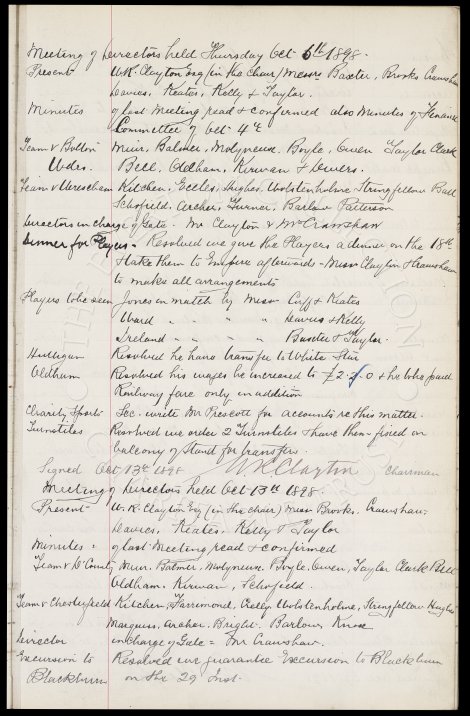 Meeting of Directors held Thursday Oct 6th 1898.
Present W.R. Clayton Esq (in the chair) Messrs Baxter, Brooks Crawshaw
Davies, Keates, Kelly & Taylor.
Minutes of last Meeting read & confirmed also Minutes of Finance
Committee of Oct 4th
Team v Bolton Muir, Balmer, Molyneux, Boyle, Owen Taylor Clark
Wdrs. Bell, Oldham, Kirwan &
Team v Kitchen, Eccles, Hughes, Wolstenholme Stringfellow Bell
Schofield, Archer, Turner, Barlow Patterson
Directors in charge of Gate. Mr Clayton & Mr Crawshaw
Dinner for Players. Resolved we give the Players a dinner on the 18th
& take them to Empire afterwards - Messrs Clayton & Crawshaw
to make all arrangements
Players to be seen Jones in match by Messrs Cuff & Keates
Ward " " " " Davies & Kelly
Ireland " " " " Baxter & Taylor.
Hulligan Resolved he have transfer to White Star
Oldham Resolved his wages be increased to £2.2.0 & he be paid
Railway fare only in addition
Charity Sports Sec. write Mr Prescott for accounts re this matter.
Turnstiles Resolved we order 2 Turnstiles & have them fixed on
balcony of Stand for transfers.
Signed Oct 13th 1898 W R Clayton Chairman
Meeting of Directors held Oct 13th 1898
Present W.R. Clayton Esq (in the chair) Messrs Brooks. Crawshaw.
Davies, Keates. Kelly & Taylor
Minutes: of last Meeting read & confirmed
Team v D. County Muir. Balmer. Molyneux. Boyle, Owen, Taylor Clark Bell
Oldham. Kirwan, Schofield.
Team v Chesterfield Kitchen, Farrimond, Creelly Wolstenholme, Stringfellow Hughes
Marquis, Archer. Bright. Barlow. Knox
Director in charge of Gate = Mr Crawshaw.
Excursion to Resolved we guarantee Excursion to Blackburn
Blackburn on the 29 Inst.